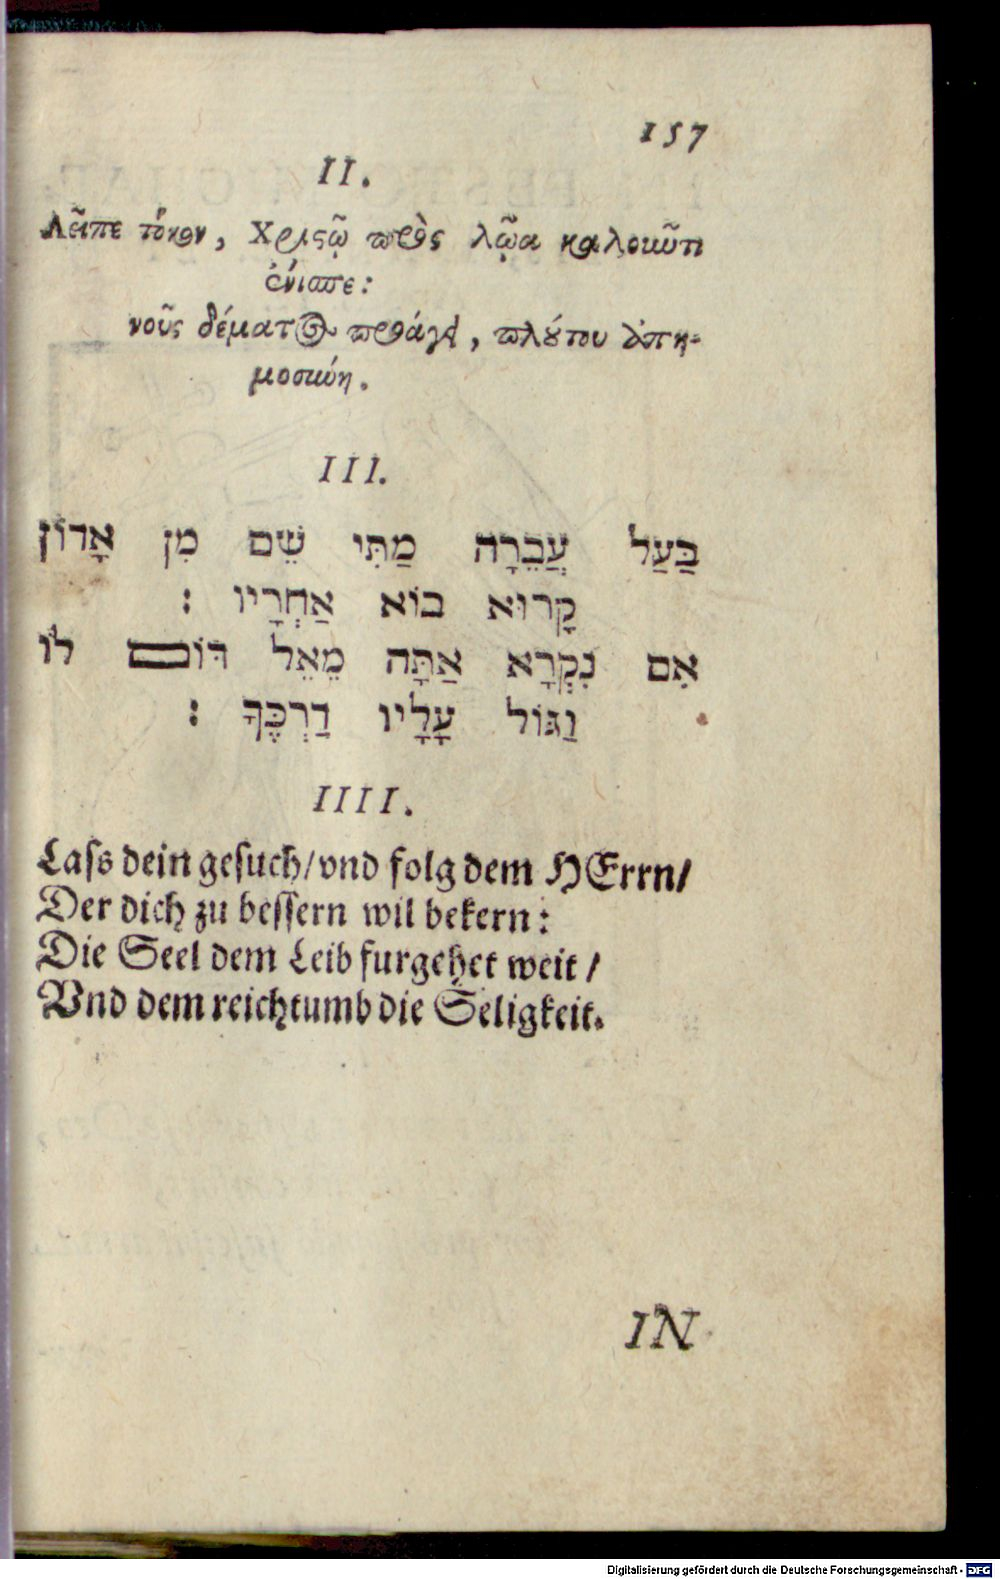 157
II.
Λεῖπε τόκον, Χριςῷ πρὸς λῷα καλοιῶτι
ἐνίσπε:
νοῦς δέματος προάγει, πλούτου ἀπη-
μοσύνη.
III.
בַּעַל עֲבֵרָה מַתִּי שֵׁם מִן אָדוֹן
קָרוּא בוֹא אַחְרָיו :
אִם נִקְרָא אַתָּה מֵאֵל דּוֹם לוֹ
וַגּוֹל עָלָיו דַרְכֶּךָ :
IIII.
Lass dein gesuch/vnd folg dem HErrn/
Der dich zu bessern wil bekern:
Die Seel dem Leib furgehet weit/
Vnd dem reichtumb die Seligkeit.
IN
Digitalisierung gefördert durch die Deutsche Forschungsgemeinschaft - DFG